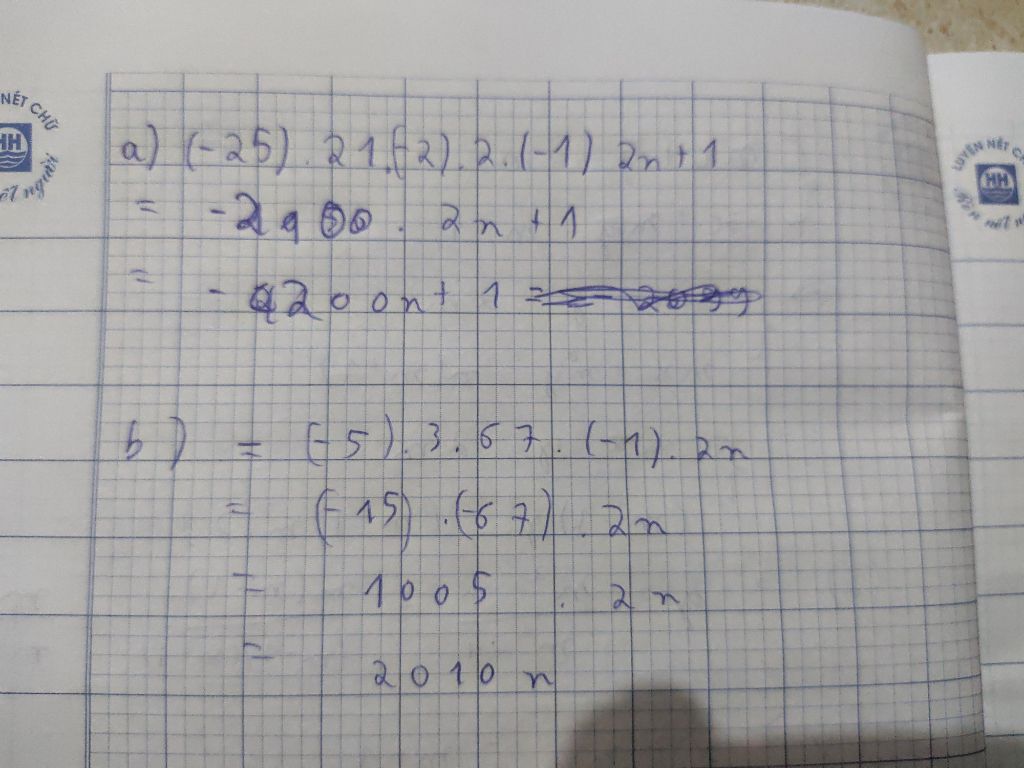 NÉT CHỮ
HH
nết người
LUYỆN NÉT CHỮ
HH
a) (-25) . 21.(-2).2.(-1) 2n+1
= . 2n+1
= - 4200n+ 1
b) = (-5).3.67.(-1).2n
= (-15) .(-67) . 2n
= 1005 . 2n
= 2010 n